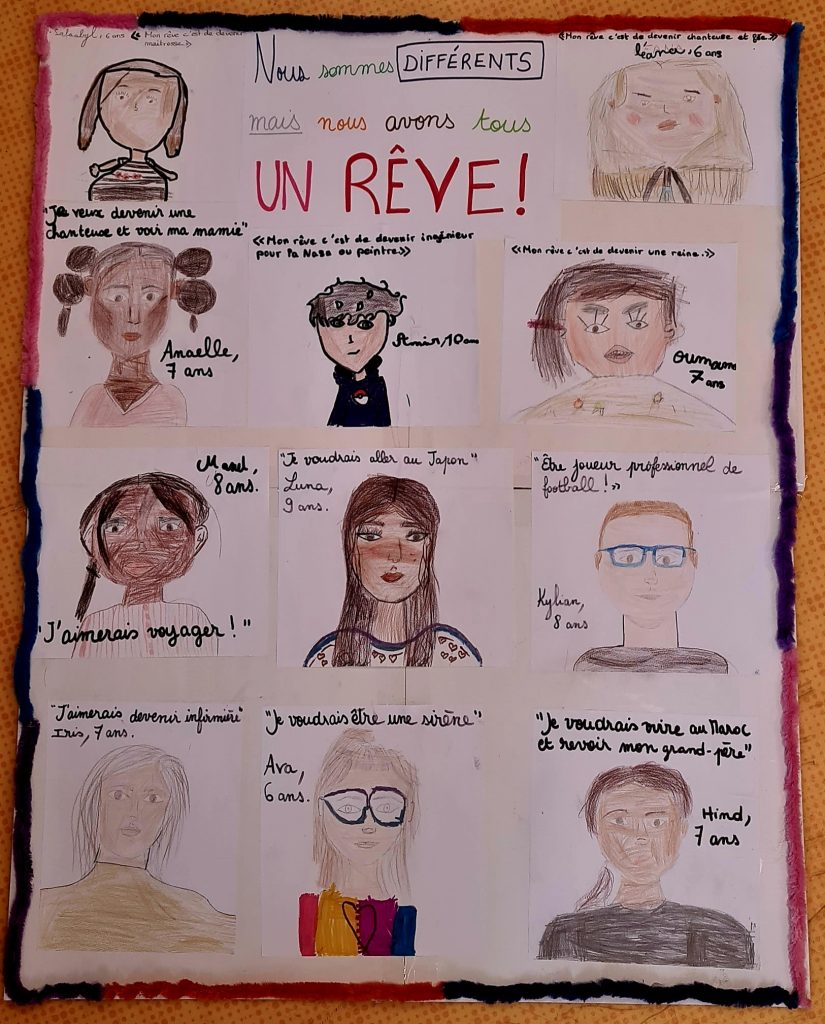 6 ans « Mon rêve c'est de devenir
maitresse.»
Nous sommes DIFFÉRENTS
mais nous avons tous
UN RÊVE!
«Mon rêve c'est de devenir chanteuse et fée.»
6 ans
"Je veux devenir une
chanteuse et voir ma mamie"
Anaelle,
7 ans
«Mon rêve c'est de devenir ingénieur
pour la Nasa ou peintre»
Amir, 10 ans
«Mon rêve c'est de devenir une reine.»
7 ans
8 ans.
"J'aimerais voyager ! "
"Je voudrais aller au Japon"
Luna,
9 ans.
"Être joueur professionnel de
football !»
Kylian,
8 ans
"J'aimerais devenir infirmière"
Iris, 7 ans.
"Je voudrais être une sirène"
Ava,
6 ans.
"Je voudrais vivre au Maroc
et revoir mon grand-père"
Hind,
7 ans